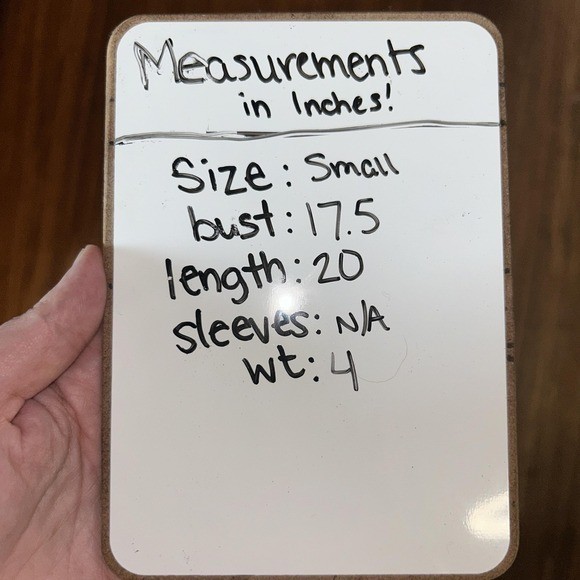 Measurements
in Inches!
Size: Small
bust: 17.5
length: 20
sleeves: N/A
wt: 4